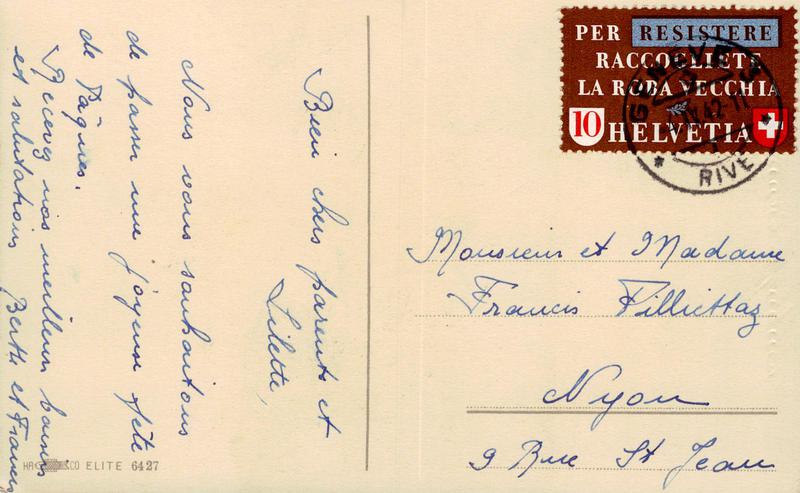 Bien chers parents et
Lilette,
Nous vous souhaitons
de passer une joyeuse fête
de Pâques.
Recevez nos meilleurs baisers
et salutations Berthe et Francis
ELITE 6427
PER RESISTERE
RACCOGLIETE
LA ROBA VECCHIA
10 HELVETIA
GENÈVE 3
42-11
RIVE
Monsieur et Madame
Francis Pilliettaz
Nyon
9 Rue St Jean